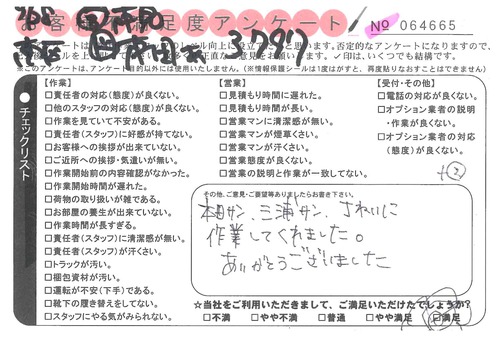 お客様満足度アンケート
No 064665
3797
上を
※このアンケートは、アンケート目的以外には使用いたしません。（※情報保護シールは1度はがすと、再度貼りなおすことはできません）
●チェックリスト
【作業】
□責任者の対応(態度)が良くない。
□他のスタッフの対応(態度)が良くない。
□作業を見ていて不安がある。
□責任者(スタッフ)に好感が持てない。
□お客様への挨拶が出来ていない。
□ご近所への挨拶・気遣いが無い。
□作業開始前の内容確認がなかった。
□作業開始時間が遅れた。
□荷物の取り扱いが雑である。
□お部屋の養生が出来ていない。
□作業時間が長すぎる。
□責任者(スタッフ)に清潔感が無い。
□責任者(スタッフ)が汗くさい。
□トラックが汚い。
□梱包資材が汚い。
□運転が不安(下手)である。
□靴下の履き替えをしてない。
□スタッフにやる気がみられない。
【営業】
□見積もり時間に遅れた。
□見積もり時間が長い。
□営業マンに清潔感が無い。
□営業マンが煙草くさい。
□営業マンが汗くさい。
□営業態度が良くない。
□営業の説明と作業が一致してない。
【受付・その他】
□電話の対応が良くない。
□オプション業者の説明
・作業が良くない。
□オプション業者の対応
(態度)が良くない。
+②
その他、ご意見・ご要望等ありましたらお書き下さい。
本田サン、三浦サン、きれいに
作業してくれました。
ありがとうございました
☆当社をご利用いただきまして、ご満足いただけたでしょうか?
□不満 □やや不満 □普通 □やや満足 ☑満足